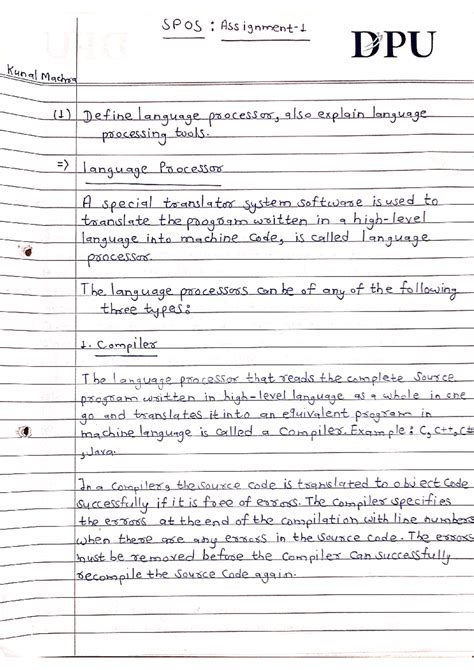 SPOS : Assignment-1
DPU
Kunal Machra
(1) Define language processor, also explain language
processing tools.
=> Language Processor
A special translator system software is used to
translate the program written in a high-level
language into machine code, is called language
processor.
The language processors can be of any of the following
three types:
1. Compiler
The language processor that reads the complete source
program written in high-level language as a whole in one
go and translates it into an equivalent program in
machine language is called a Compiler. Example: C, C++, C#
, Java.
In a Compiler, the source code is translated to object code
successfully if it is free of errors. The compiler specifies
the errors at the end of the compilation with line numbers
when there are any errors in the source code. The errors
must be removed before the compiler can successfully
recompile the source code again.